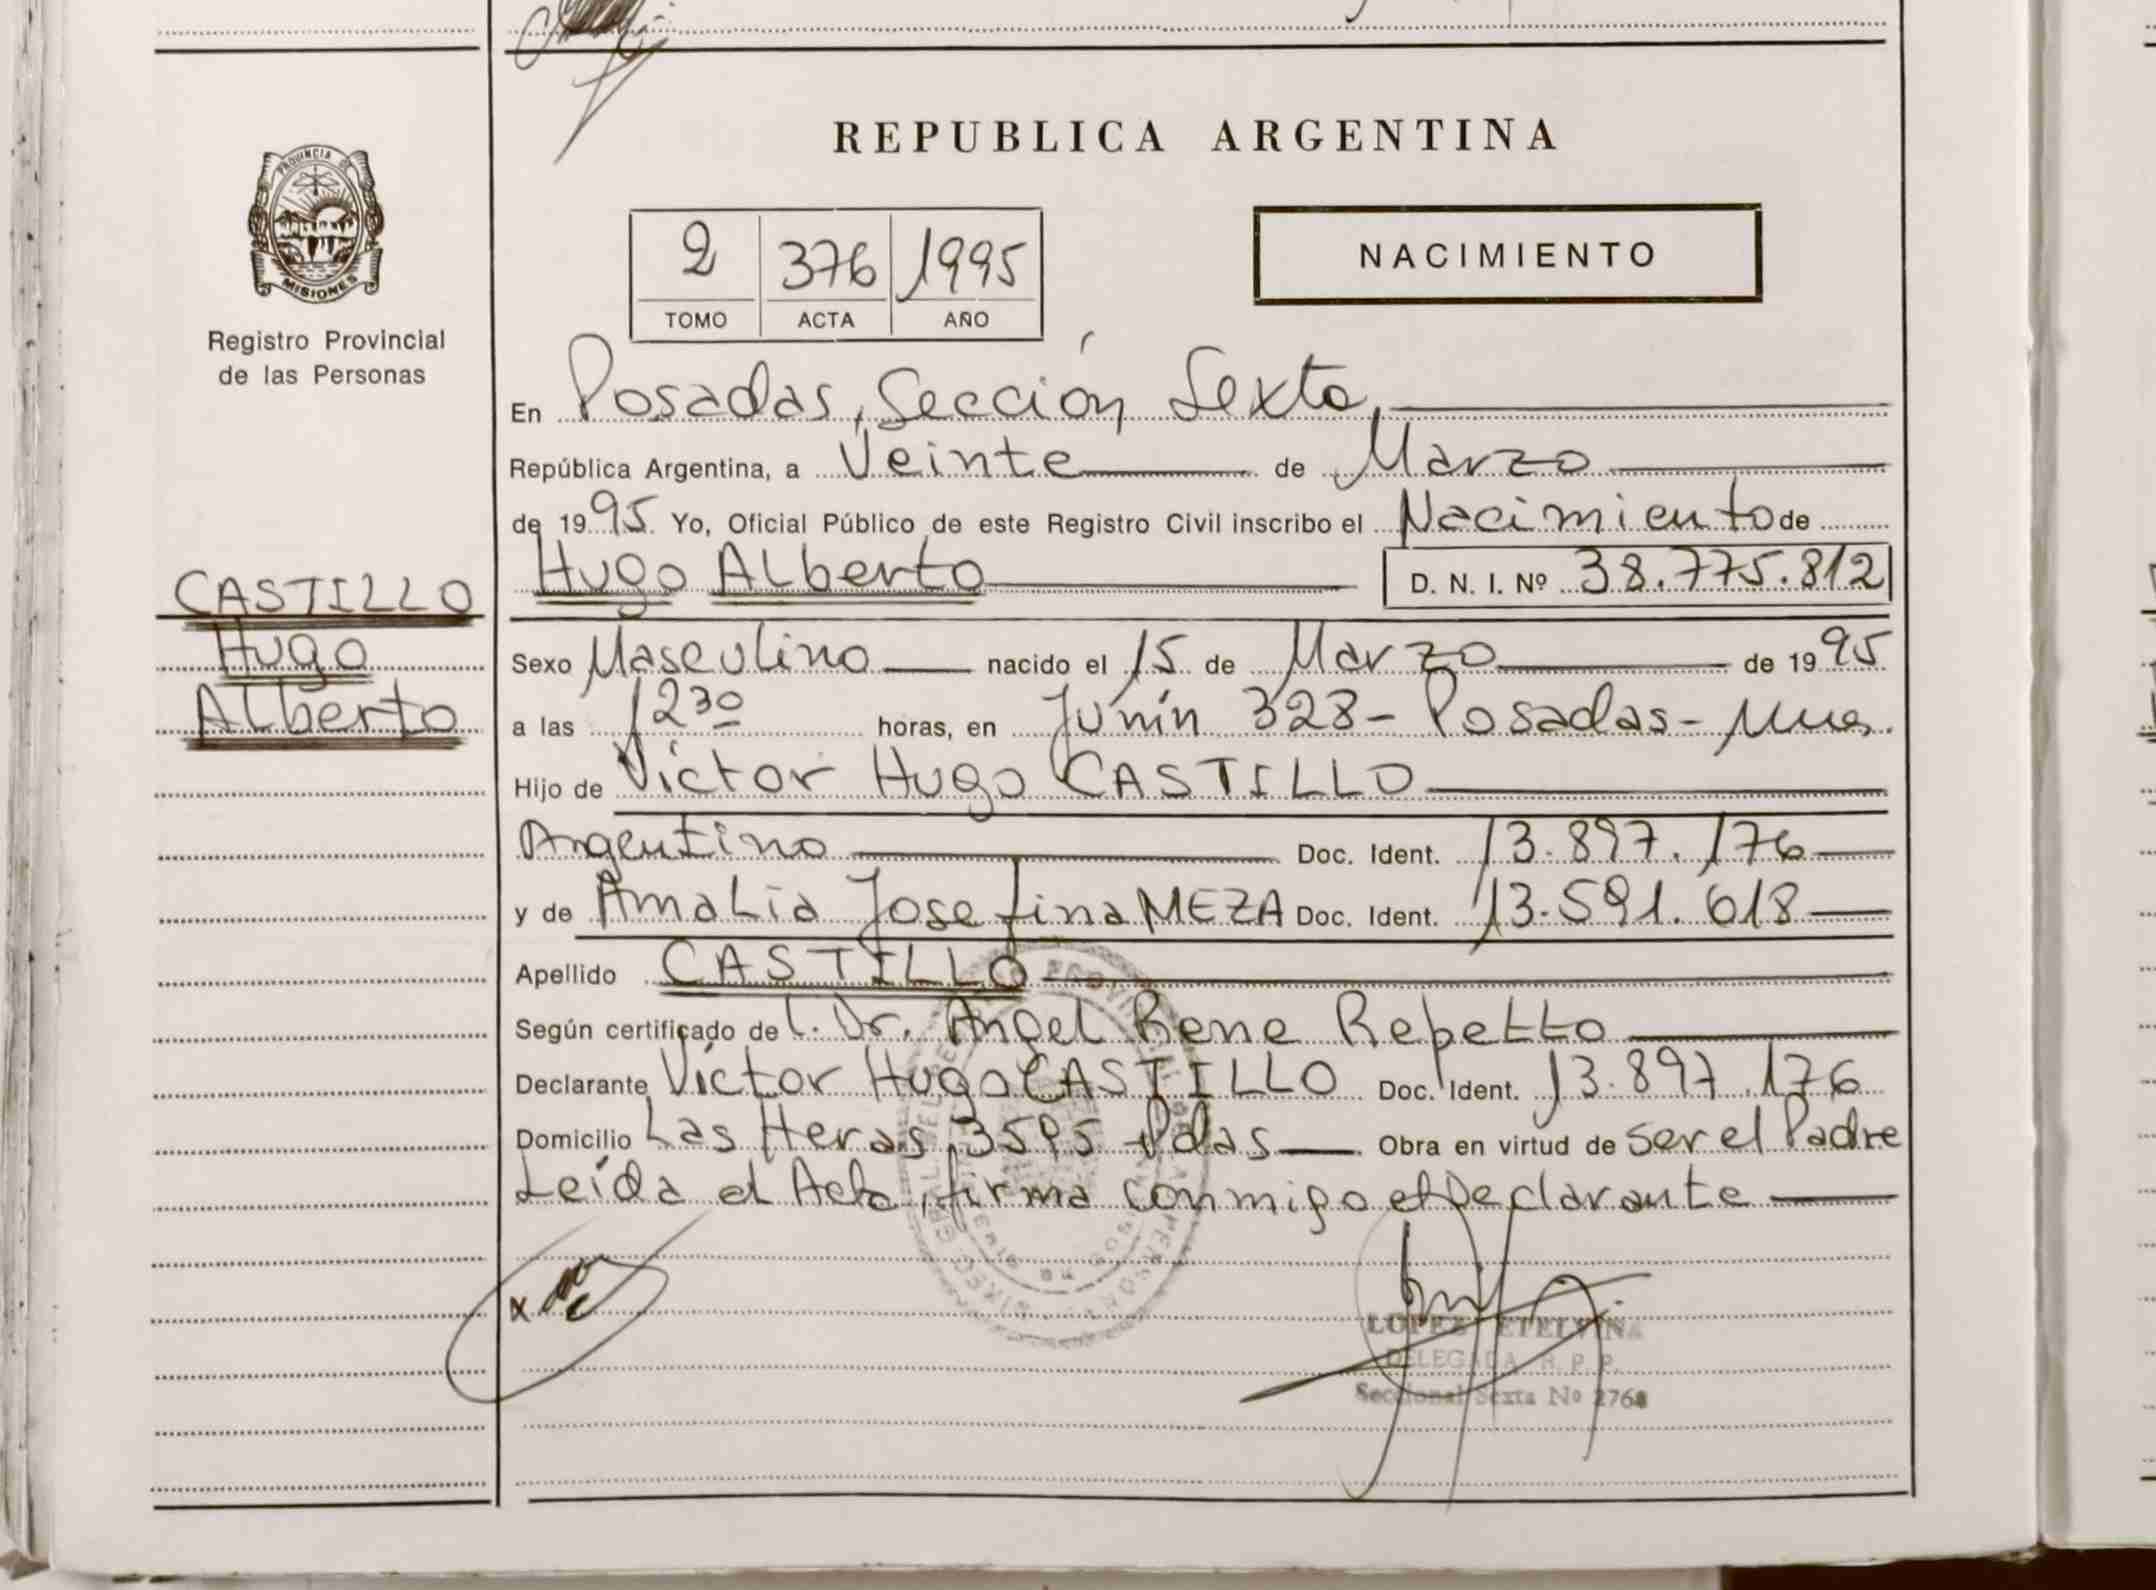 REPUBLICA ARGENTINA
PROVINCIA DE
MISIONES
Registro Provincial
de las Personas
2 376 1995
TOMO ACTA AÑO
NACIMIENTO
En Posadas, Sección Sexta,
República Argentina, a Veinte de Marzo
de 1995 Yo, Oficial Público de este Registro Civil inscribo el Nacimiento de
Hugo Alberto D. N. I. Nº 38.775.812
CASTILLO
Hugo
Alberto
Sexo Masculino nacido el 15 de Marzo de 1995
a las 1230 horas, en Junín 328 - Posadas - Mnes.
Hijo de Víctor Hugo CASTILLO
Argentino Doc. Ident. 13.897.176
y de Amalia Josefina MEZA Doc. Ident. 13.591.618
Apellido CASTILLO
Según certificado de l. Dr. Angel Rene Repetto
Declarante Víctor Hugo CASTILLO Doc. Ident. 13.897.176
Domicilio Las Heras 3595 Pdas Obra en virtud de ser el Padre
Leída el Acta, firma conmigo el Declarante
x
LOPEZ ETELVINA
DELEGADA R. P. P.
Seccional Sexta Nº 2764